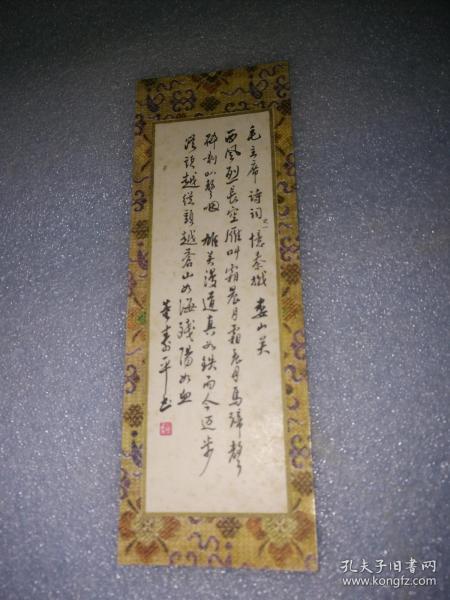 毛主席诗词 憶秦娥 娄山关
西风烈长空雁叫霜晨月霜晨月马蹄声
碎喇叭声咽 雄关漫道真如铁而今迈步
从头越从头越苍山如海残陽如血
董寿平书
孔夫子旧书网
www.kongfz.com